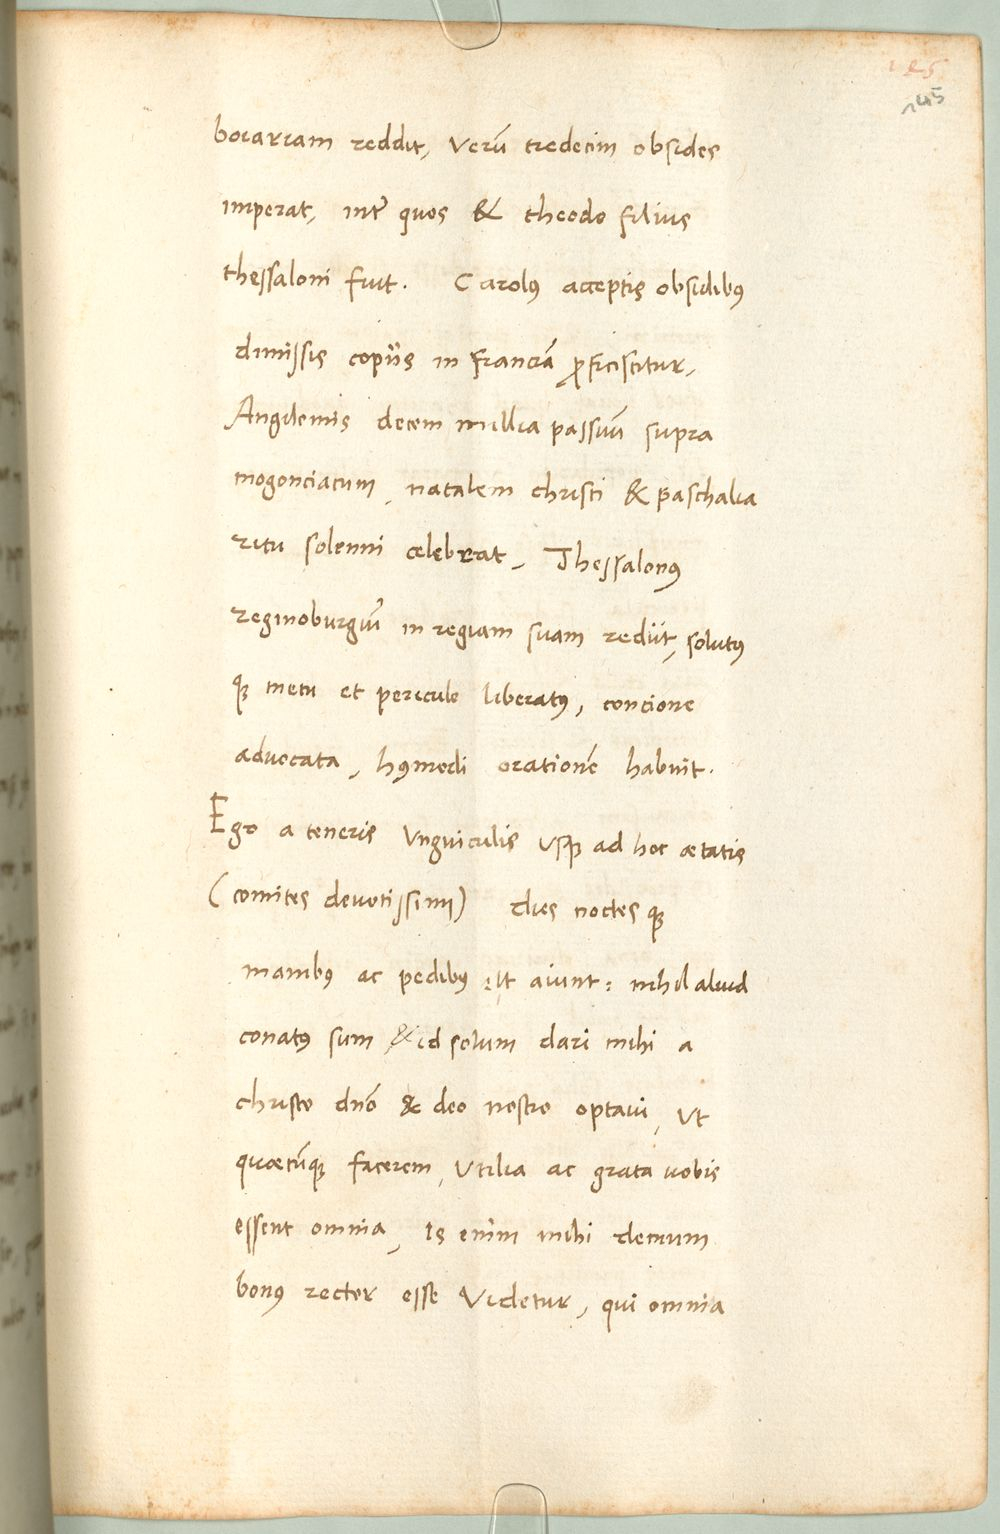 125
145
boiariam reddit, Verū tredecim obsides
imperat, inter quos & theodo filius
thessaloni fuit. Carolꝰ acceptis obsidibꝰ
dimissis copiis in franciā ꝓficiscitur,
Angilemis decem millia passuū supra
mogonciacum, natalem christi & paschalia
ritu solenni celebrat, Thessalonꝰ
reginoburgiū in regiam suam rediit, solutꝰ
qꝫ metu et periculo liberatꝰ, concione
advocata, hꝰmodi orationē habuit.
Ego a teneris Vnguiculis usqꝫ ad hoc ætatis
(comites devotissimi) dies noctes qꝫ
manibꝰ ac pedibꝰ ut aiunt: nihil aliud
conatꝰ sum & id solum dari mihi a
christo dño & deo nostro optavi, Ut
quæcūqꝫ facerem, Utilia ac grata vobis
essent omnia, Is enim mihi demum
bonꝰ rector esse Videtur, qui omnia